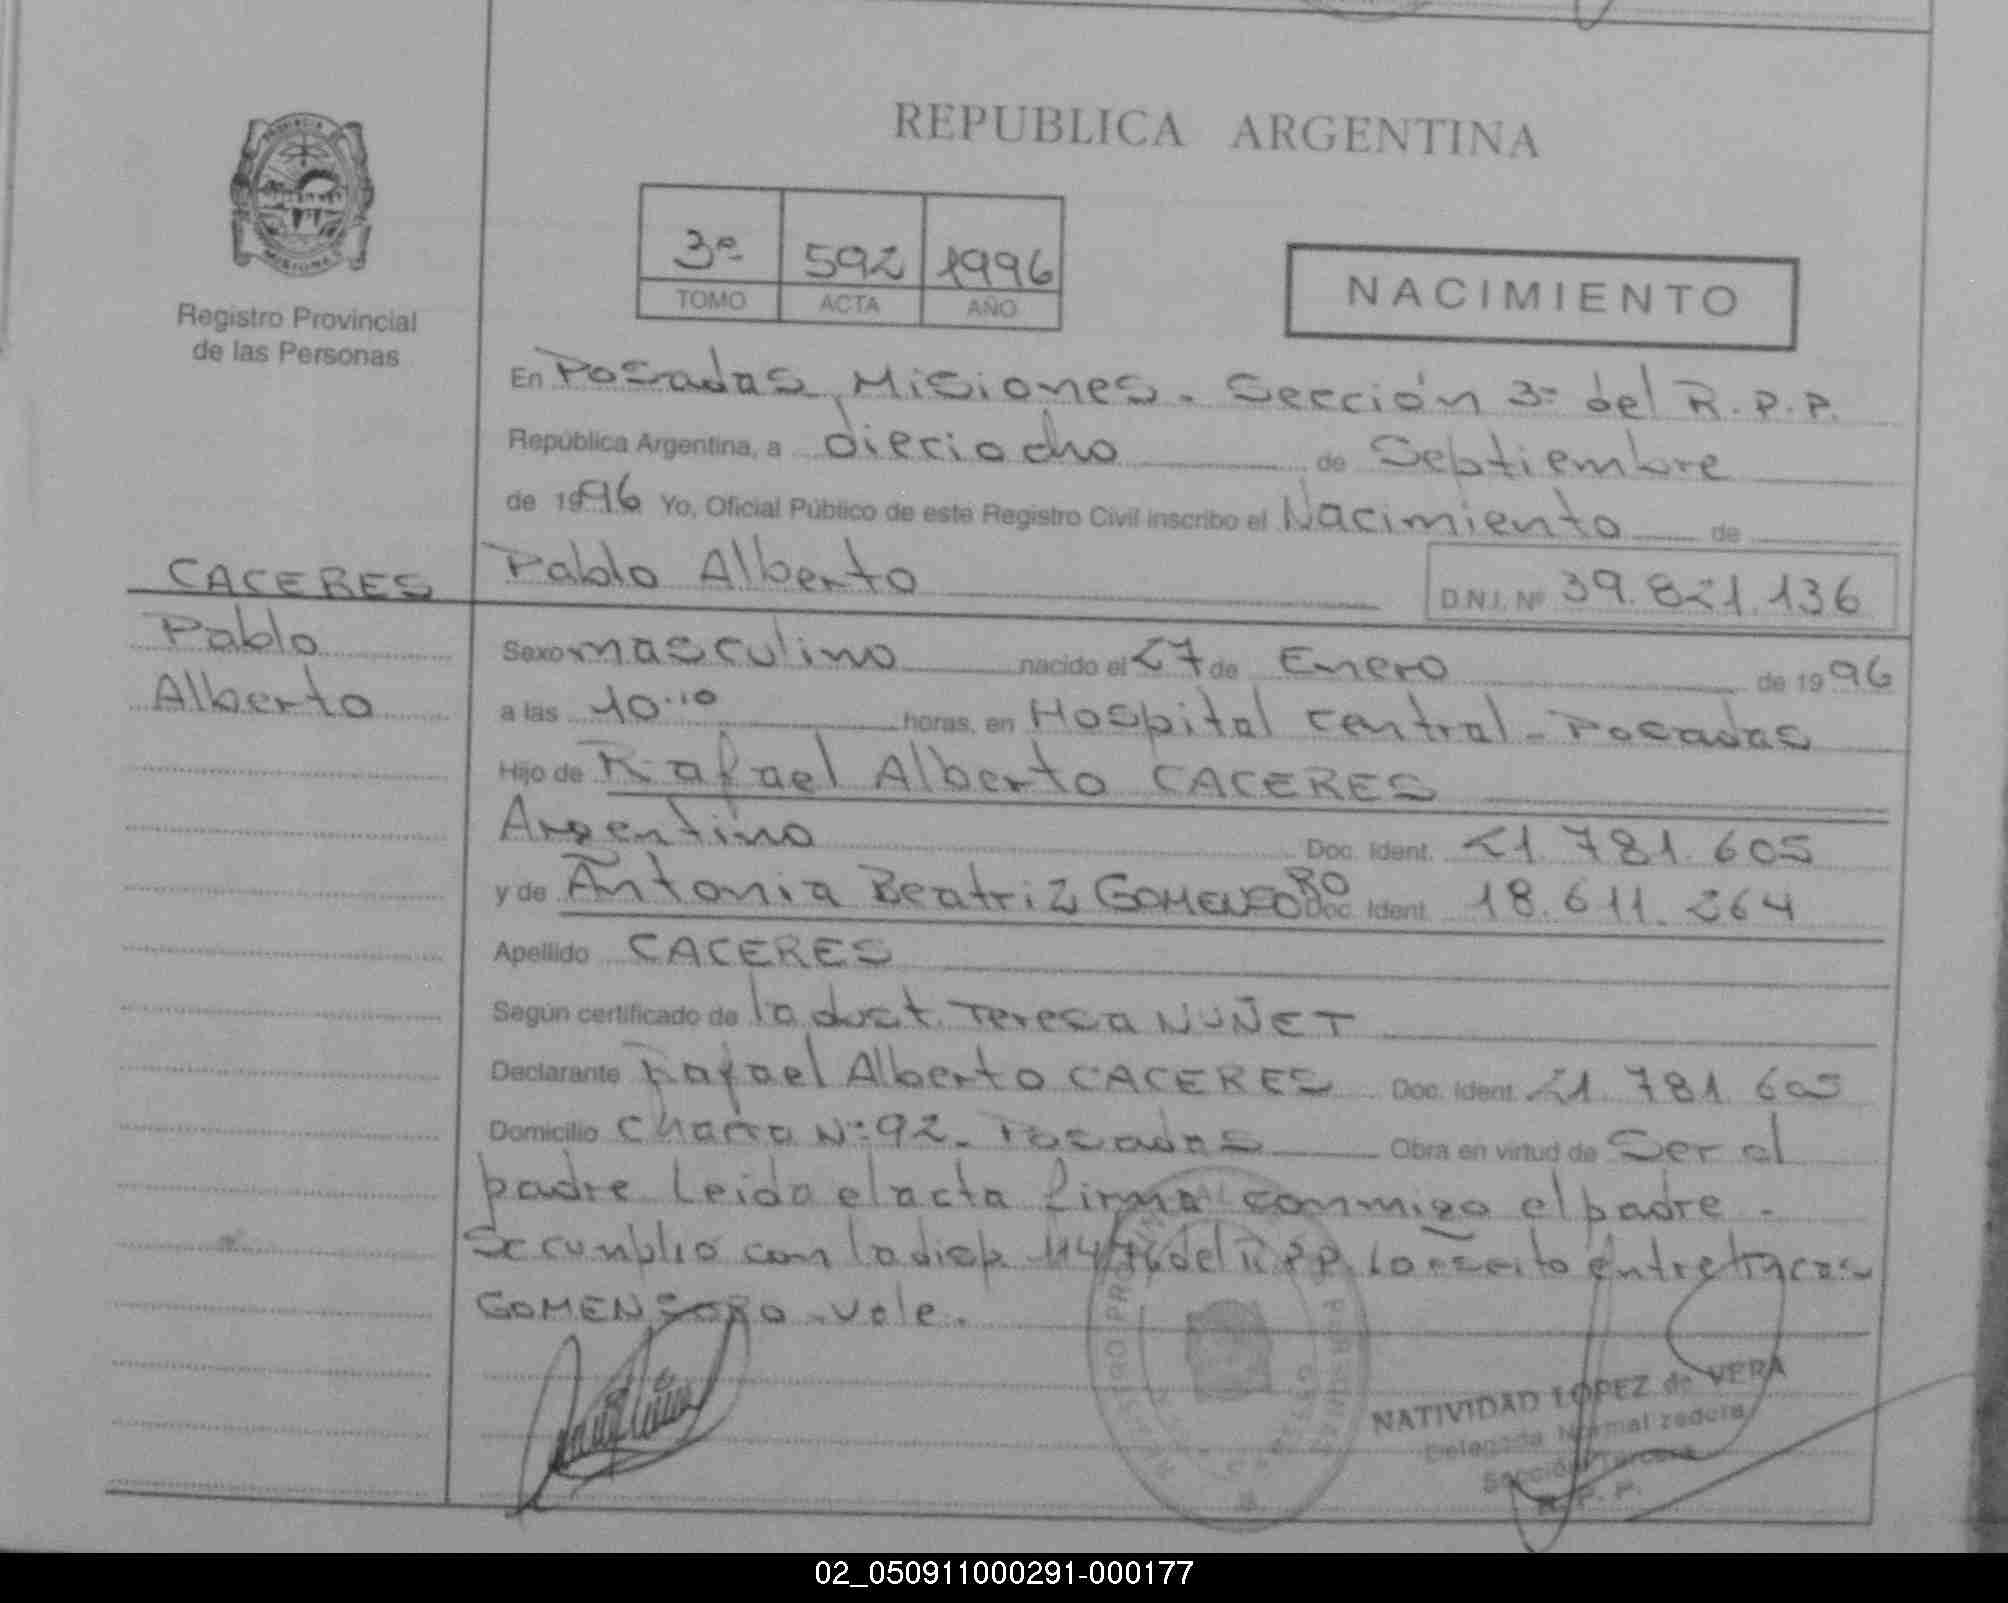 REPUBLICA ARGENTINA
3ª 592 1996
TOMO ACTA AÑO
NACIMIENTO
Registro Provincial
de las Personas
En Posadas, Misiones. Sección 3ª del R.P.P.
República Argentina, a dieciocho de Septiembre
de 1996 Yo, Oficial Público de este Registro Civil inscribo el Nacimiento de
CACERES
Pablo
Alberto
Pablo Alberto D.N.I. Nº 39.821.136
Sexo masculino nacido el 27 de Enero de 1996
a las 10.10 horas, en Hospital Central - Posadas
Hijo de Rafael Alberto CACERES
Argentino Doc. Ident. 21.781.605
y de Antonia Beatriz GOMENSORO Doc. Ident. 18.611.264
Apellido CACERES
Según certificado de la duct. Teresa NUÑET
Declarante Rafael Alberto CACERES Doc. Ident. 21.781.605
Domicilio Chacra Nº 92 - Posadas Obra en virtud de Ser el
padre Leida el acta firma conmigo el padre -
Se cumplió con la disp. del R.P.P. Lo escrito entre
GOMENSORO - vale.
NATIVIDAD LOPEZ de VERA
Delegada Normalizadora
Sección Tercera
R. P. P.
02_050911000291-000177